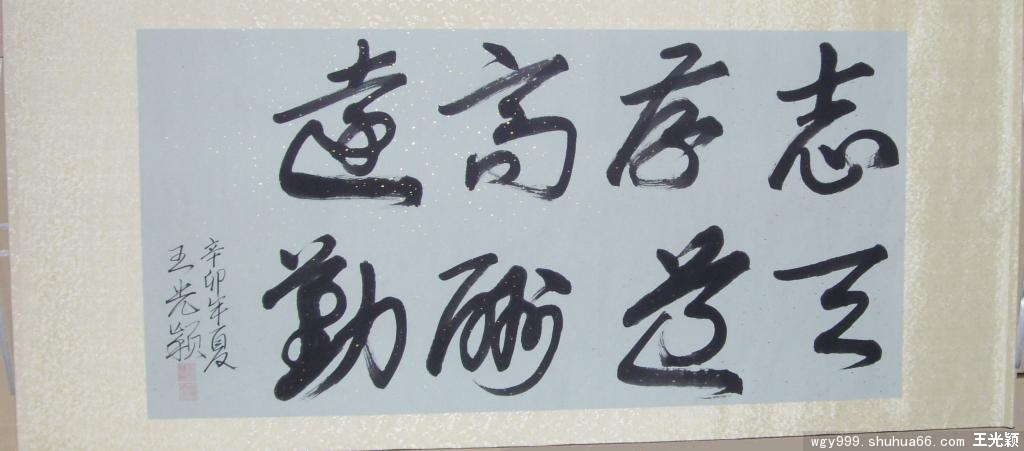 志存高遠
天道酬勤
辛卯年夏
王光颖
wgy999.shuhua66.com 王光颖